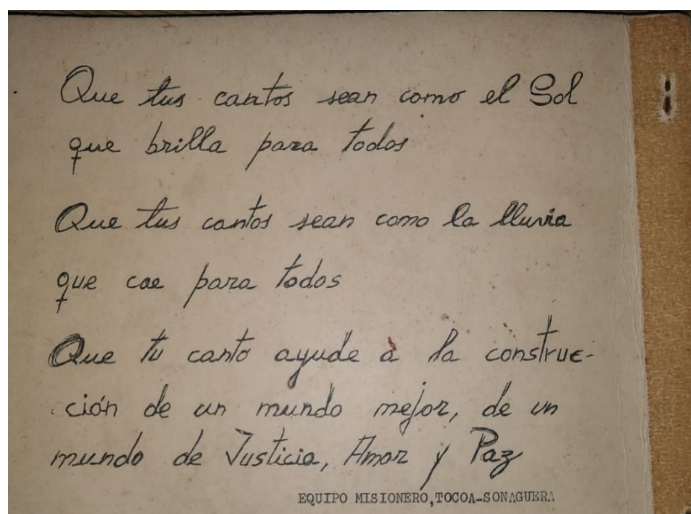 Que tus cantos sean como el Sol
que brilla para todos
Que tus cantos sean como la lluvia
que cae para todos
Que tu canto ayude a la construc-
ción de un mundo mejor, de un
mundo de Justicia, Amor y Paz
EQUIPO MISIONERO,TOCOA-SONAGUERA